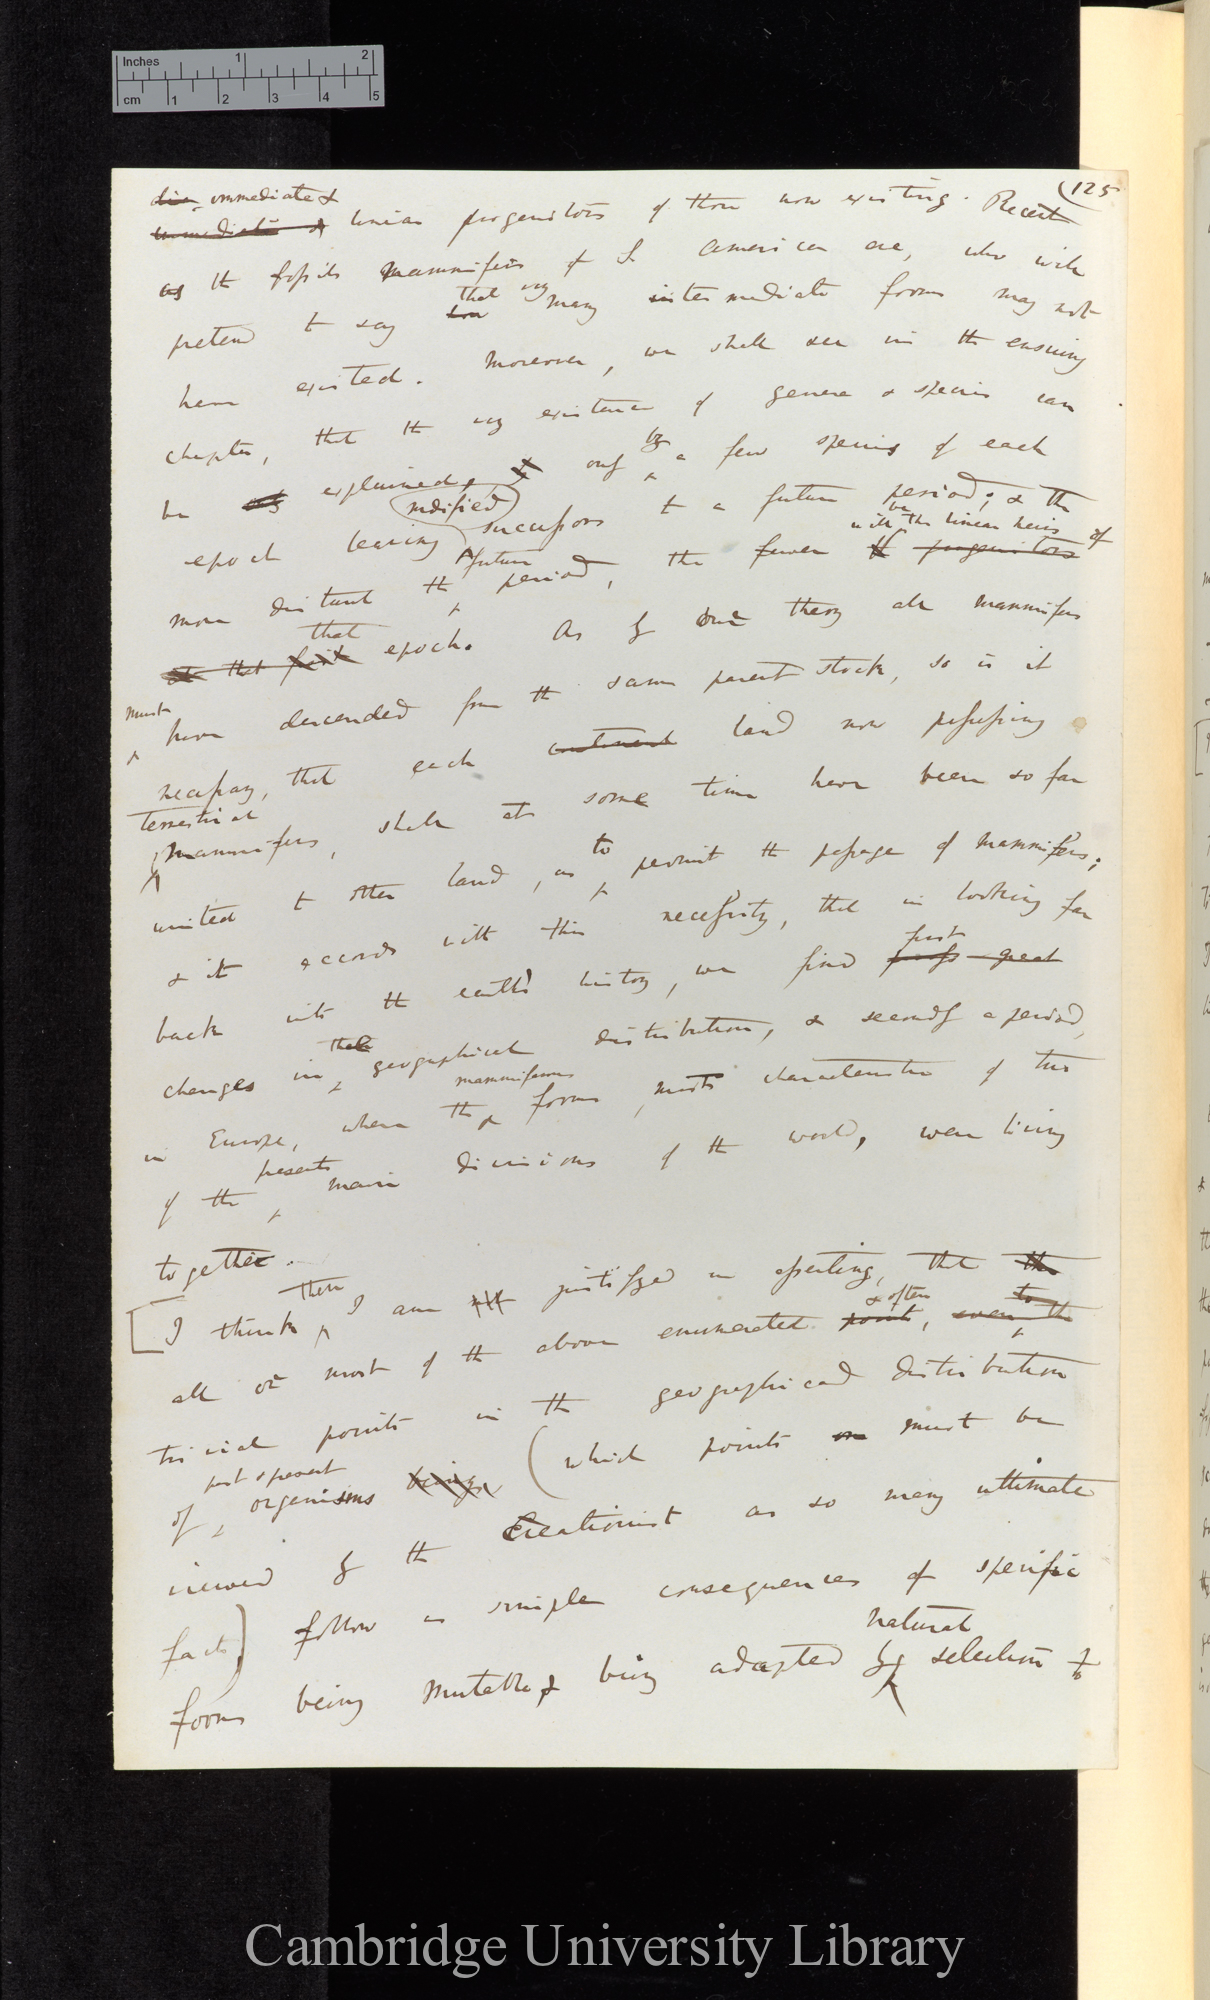 Inches 1 2
cm 1 2 3 4 5
(125
immediate &
immediate & linear progenitors of those now existing. Recent
as the fossils mammifers of S. American are, who will
that very
pretend to say how many intermediate forms may not
have existed. Moreover, we shall see in the ensuing
chapter, that the very existence of genera & species can
by
be only explained, only a few species of each
modified
epoch leaving successors to a future period; & the
future be
with the linear heirs of
more distant the period, the fewer the progenitors
that
that first epoch. As by our theory all mammifers
must
have descended from the same parent stock, so is it
necessary, that each continent land now possessing
terrestrial
mammifers, shall at some time have been so far
to
united to other land, as permit the passage of mammifers;
& it accords with this necessity, that in looking far
first
back into the earth's history, we find great
their
changes in geographical distribution, & secondly a period,
mammiferous
in Europe, when the forms, most characteristic of two
present
of the main divisions of the world, were living
together.
then
[I think I am not justified in asserting, that the
& often to
all or most of the above enumerated points, even the
trivial points in the geographical distribution
past & present
of organisms beings, (which points must be
viewed by the Creationist as so many ultimate
facts) follow as simple consequences of specific
natural
forms being mutable & being adapted by selection to
Cambridge University Library